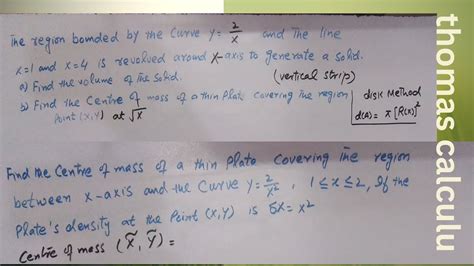 The region bounded by the Curve y = 2/x and The line
x=1 and x=4 is revolved around x-axis to generate a solid.
a) Find the volume of the solid. (vertical strip)
b) Find the Centre of mass of a thin Plate covering the region
Point (X,Y) at √x
disk Method
d(A) = π [R(x)]²
Find the Centre of mass of a thin Plate Covering the region
between x-axis and the Curve y = 2/x², 1 ≤ x ≤ 2, If the
Plate's density at the Point (X,Y) is δx = x²
Centre of mass (x̃, ỹ) =
thomas calculu